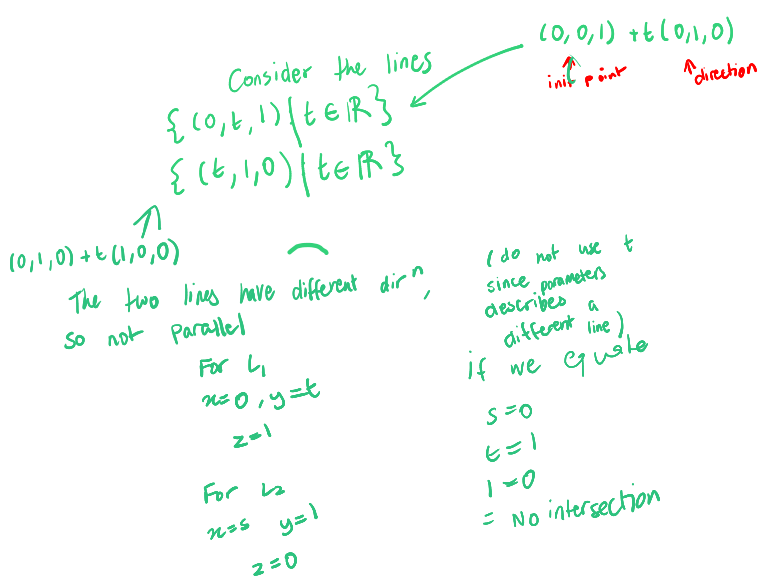 (0,0,1) + t(0,1,0)
init point
direction
Consider the lines
{(0,t,1) | t ∈ ℝ}
{(t,1,0) | t ∈ ℝ}
(0,1,0) + t(1,0,0)
The two lines have different dirⁿ,
so not parallel
For L₁
x=0, y=t
z=1
For L₂
x=s y=1
z=0
(do not use t
since parameters
describes a
different line)
if we equate
s=0
t=1
1=0
= No intersection